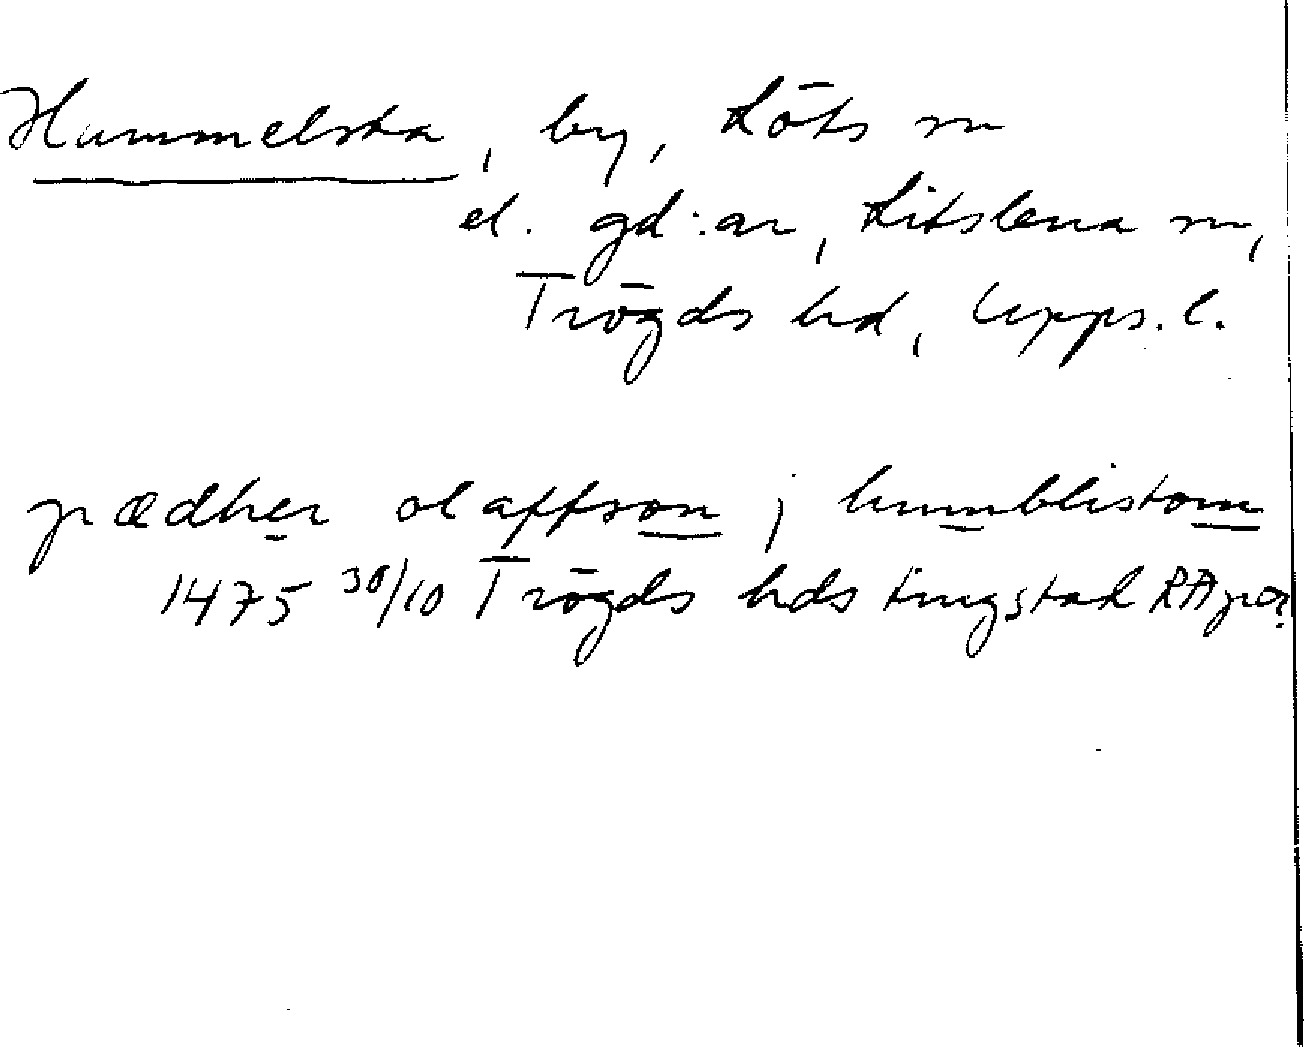 Hummelsta, by, Löts sn
el. gd:ar, Litslena sn,
Trögds hd, Upps. l.
pædher olaffson j humblistom
1475 30/10 Trögds hds tingstad RAp or